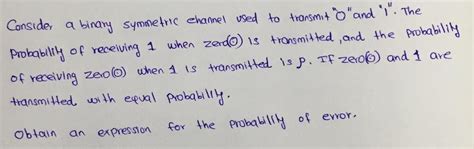 Consider a binary symmetric channel used to transmit "0" and "1". The
Probability of receiving 1 when zero(0) is transmitted, and the probability
of receiving zero(0) when 1 is transmitted is p. If zero(0) and 1 are
transmitted with equal Probability.
Obtain an expression for the probability of error.